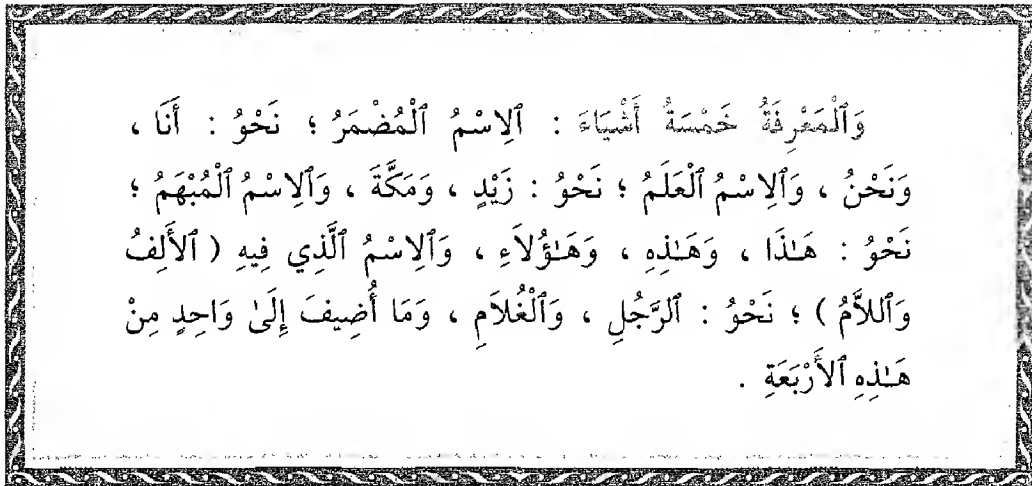 وَٱلْمَعْرِفَةُ خَمْسَةُ أَشْيَاءَ : ٱلِاسْمُ ٱلْمُضْمَرُ ؛ نَحْوُ : أَنَا ،
وَنَحْنُ ، وَٱلِاسْمُ ٱلْعَلَمُ ؛ نَحْوُ : زَيْدٍ ، وَمَكَّةَ ، وَٱلِاسْمُ ٱلْمُبْهَمُ ؛
نَحْوُ : هَـٰذَا ، وَهَـٰذِهِ ، وَهَـٰؤُلَاءِ ، وَٱلِاسْمُ ٱلَّذِي فِيهِ ( ٱلْأَلِفُ
وَٱللَّامُ ) ؛ نَحْوُ : ٱلرَّجُلِ ، وَٱلْغُلَامِ ، وَمَا أُضِيفَ إِلَىٰ وَاحِدٍ مِنْ
هَـٰذِهِ ٱلْأَرْبَعَةِ .